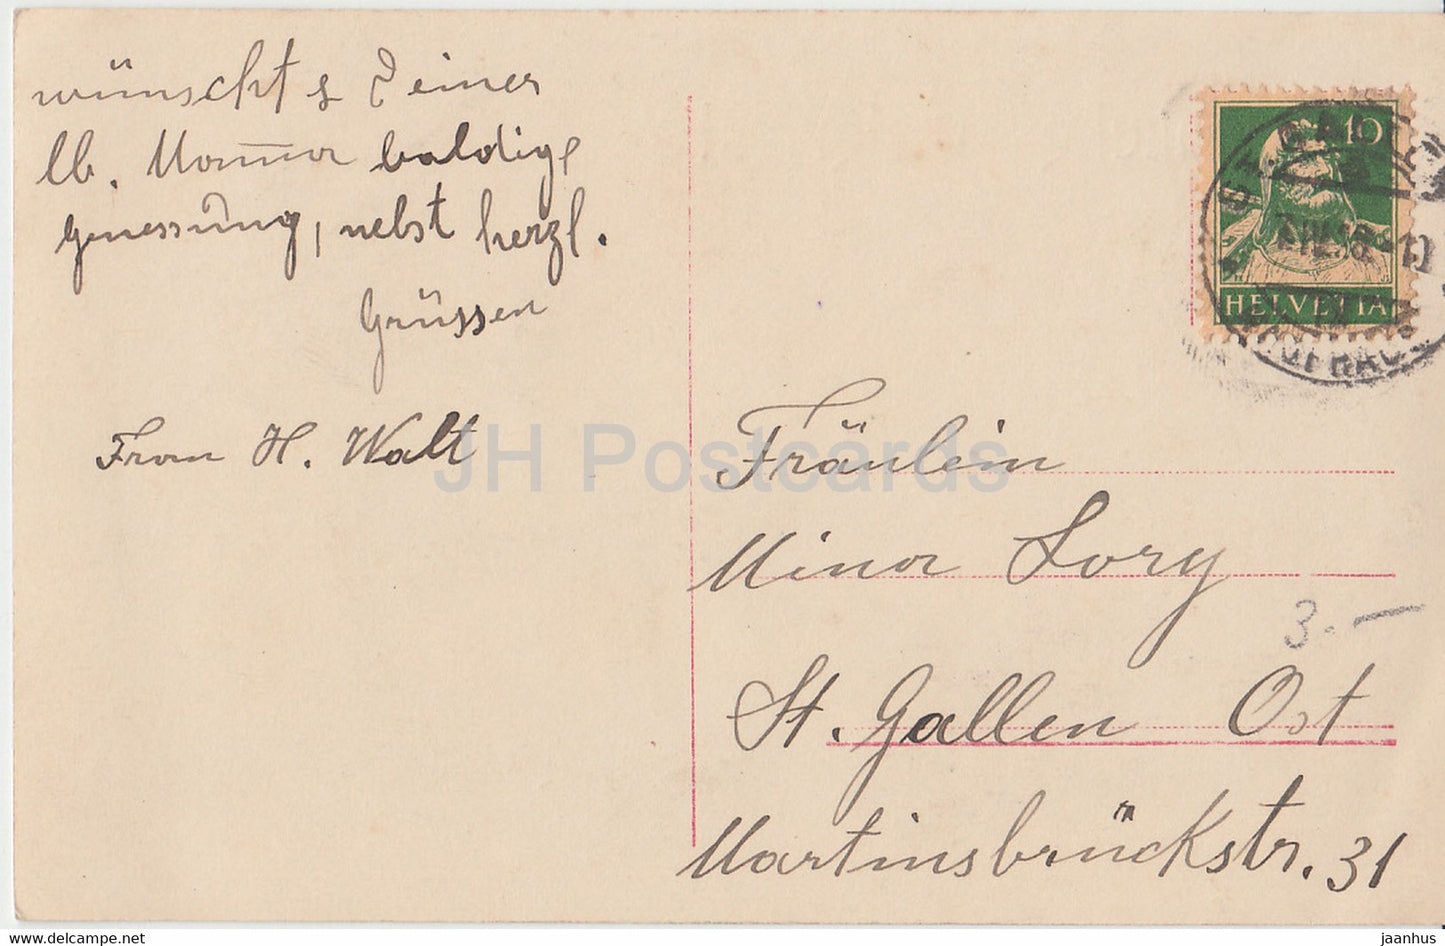 wünscht & Deiner
lb. Mamma baldige
Genessung, nebst herzl.
Grüssen
Frau H. Walt
10
HELVETIA
ST. GALLEN
Fräulein
Mina Lory
3.-
St. Gallen Ost
Martinsbrückstr. 31
JH Postcards
jaanhus